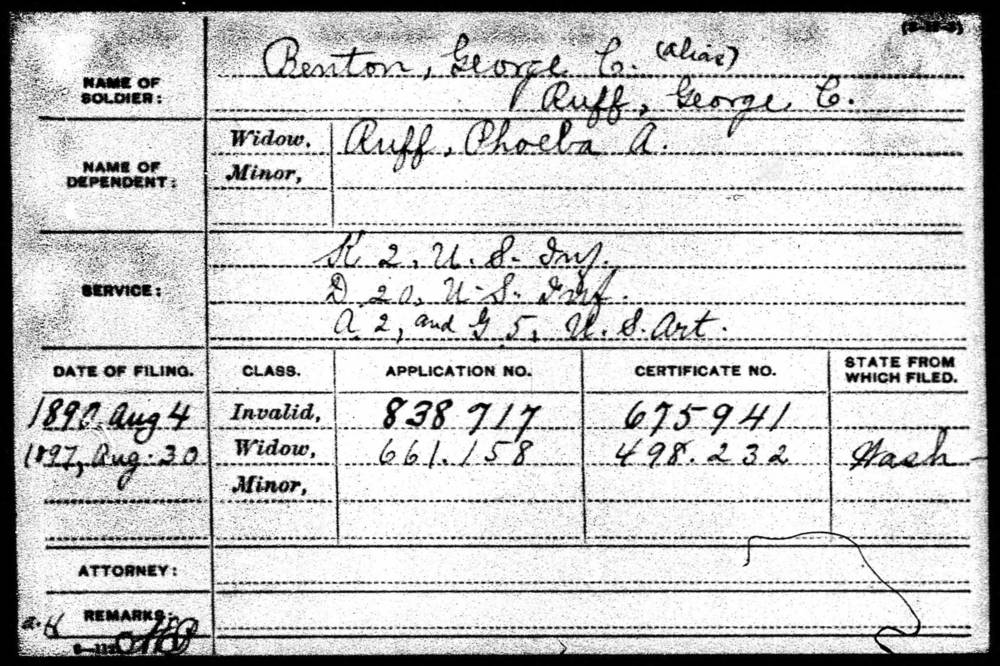 Benton, George C. (alias)
NAME OF SOLDIER: Ruff, George C.
NAME OF DEPENDENT: Widow, Ruff, Phoeba A.
Minor,
SERVICE: K 2, U. S. Inf.
D 20, U. S. Inf.
A 2, and G 5, U. S. Art.
DATE OF FILING. CLASS. APPLICATION NO. CERTIFICATE NO. STATE FROM WHICH FILED.
1890, Aug 4 Invalid, 838717 675941
1897, Aug. 30 Widow, 661.158 498.232 Wash
Minor,
ATTORNEY:
REMARKS: